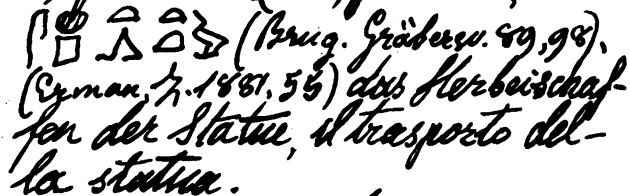 (Brug. Gräberw. 89, 98),
(Erman, Z. 1881, 55) das Herbeischaf-
fen der Statue, il trasporto del-
la statua.